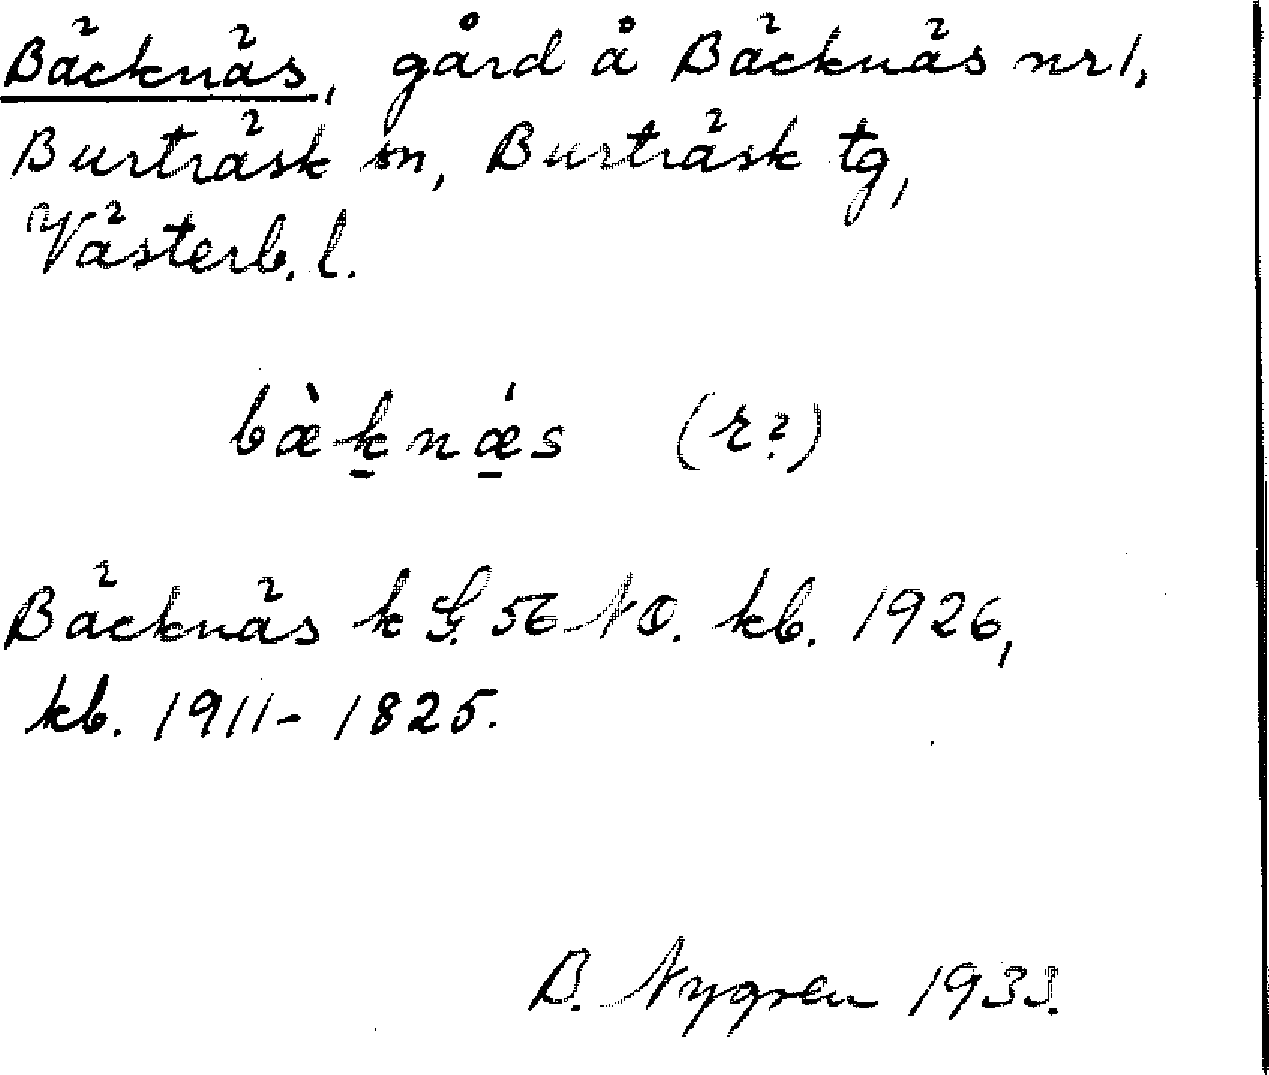 Bäcknäs, gård å Bäcknäs nr 1,
Burträsk sn, Burträsk tg,
Västerb. l.
bæ̀k̠nǽ̠s (r?)
Bäcknäs k G. 56 NO. kb. 1926,
kb. 1911-1825.
B. Nygren 1933.